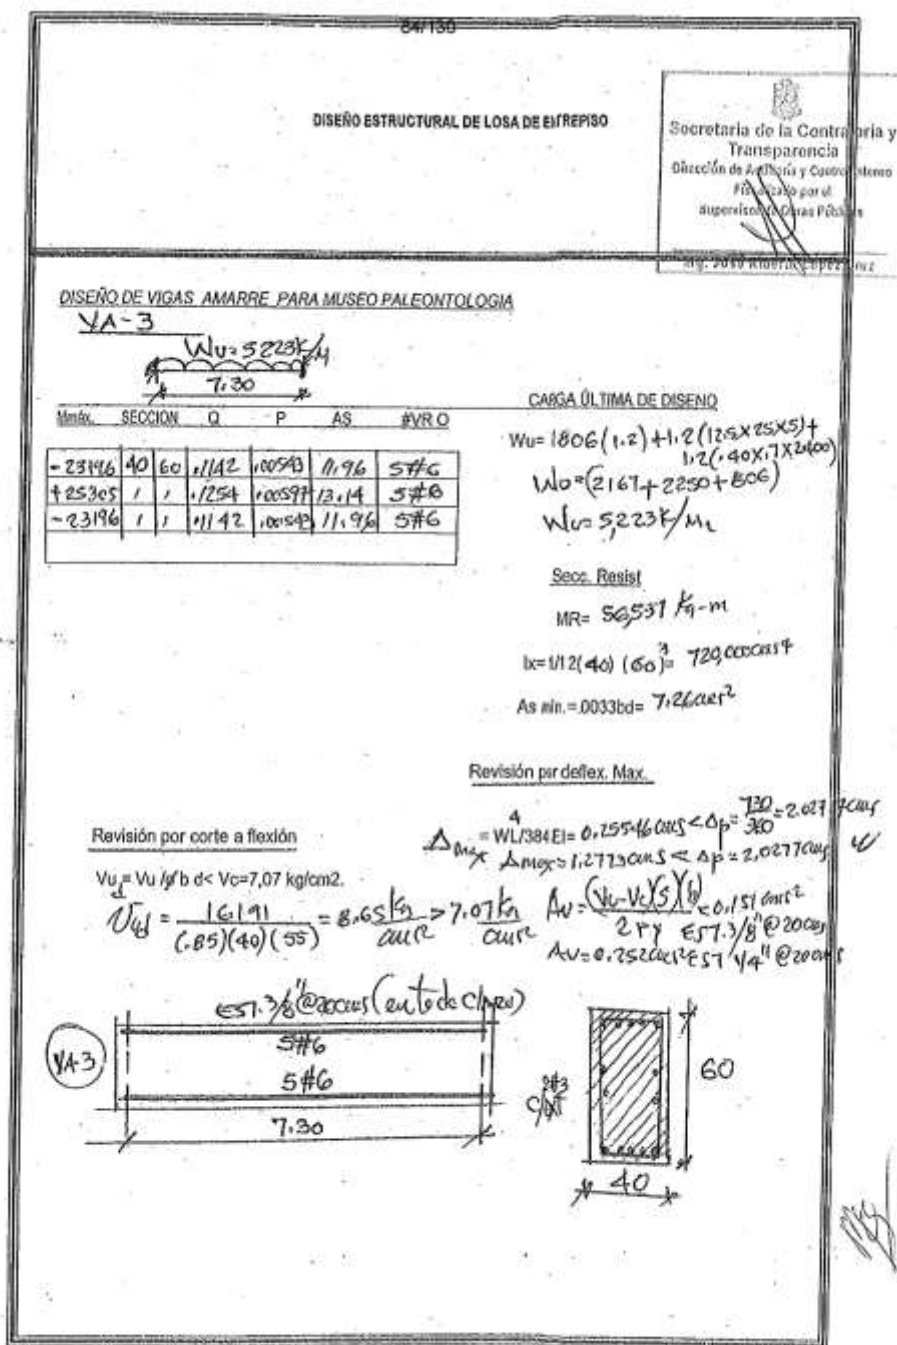 64/130
DISEÑO ESTRUCTURAL DE LOSA DE ENTREPISO
Secretaría de la Contraloría y
Transparencia
Dirección de Auditoría y Control Interno
Fiscalizado por el
Supervisor de Obras Públicas
Ing. José
DISEÑO DE VIGAS AMARRE PARA MUSEO PALEONTOLOGIA
VA-3
Wu=5223K/M
7.30
Mmáx. SECCION Q P AS #VR O
-23196 40 60 .1142 .00543 11.96 5#6
+25305 " " .1254 .00597 13.14 5#6
-23196 " " .1142 .00543 11.96 5#6
CARGA ÚLTIMA DE DISENO
Wu= 1806(1.2)+1.2(12.5X25X5)+
1.2(.40X.7X2400)
Wu=(2167+2250+806)
Wu=5,223K/ML
Secc. Resist
MR= 56,537 Kg-m
Ix=1/12(40) (60)³= 720,000cms4
As min.=.0033bd= 7.26cm²
Revisión por deflex. Max.
Δmax = WL4/384EI= 0.25546cms < Δp= 730/360 =2.0277cms
Δmax=1.2773cms < Δp=2.0277cms
Revisión por corte a flexión
Vu = Vu /ø b d< Vc=7,07 kg/cm2.
Vud = 16191/(.85)(40)(55) = 8.65 kg/cm² > 7.07 kg/cm²
Av= (Vu-Vc)(S)(b)/2FY =0.151cms² EST.3/8"@20cms
Av=0.252cm² EST 1/4"@20cms
EST.3/8"@20cms (en todo Claro)
VA-3
5#6
5#6
7.30
2#3
60
40